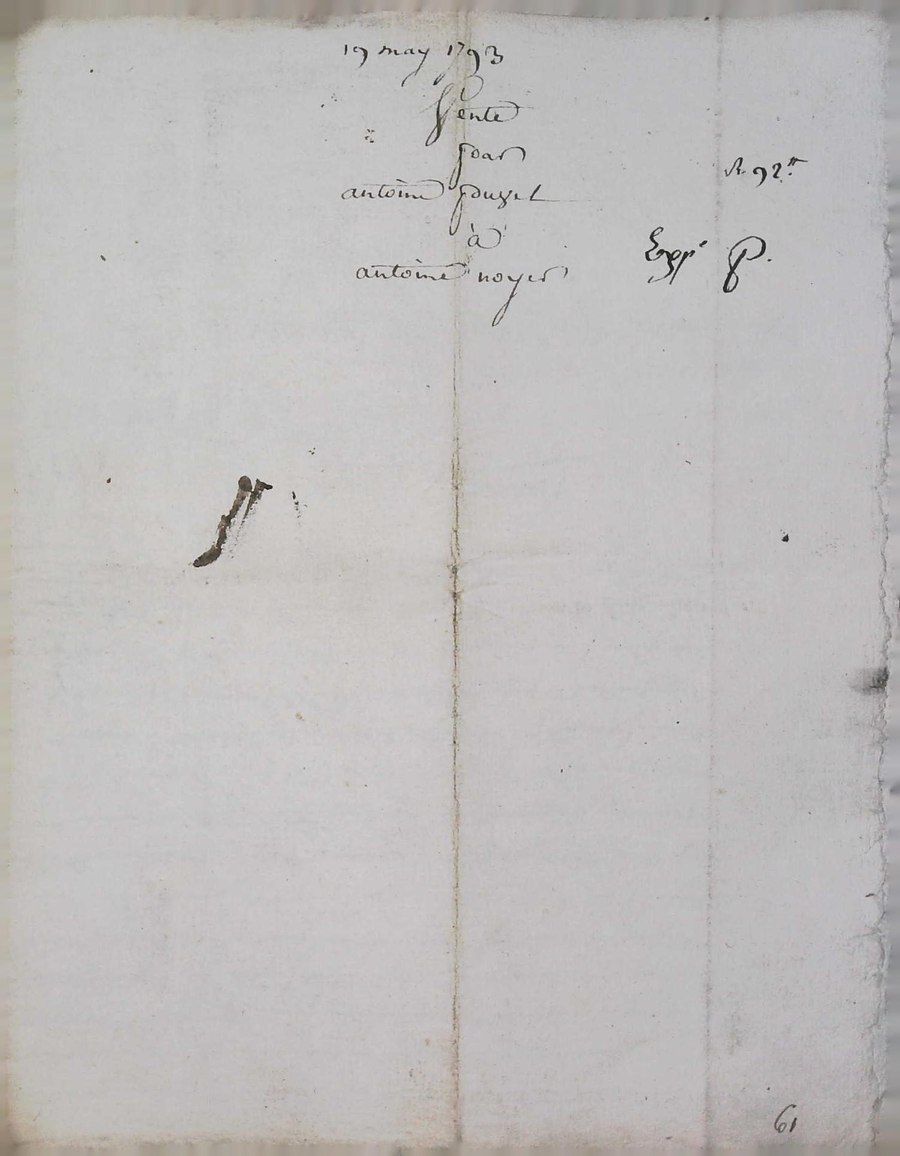 19 may 1793
Vente
par
antoine pouget
à
antoine noyer
R. 92.tt
Exp.é P.
61